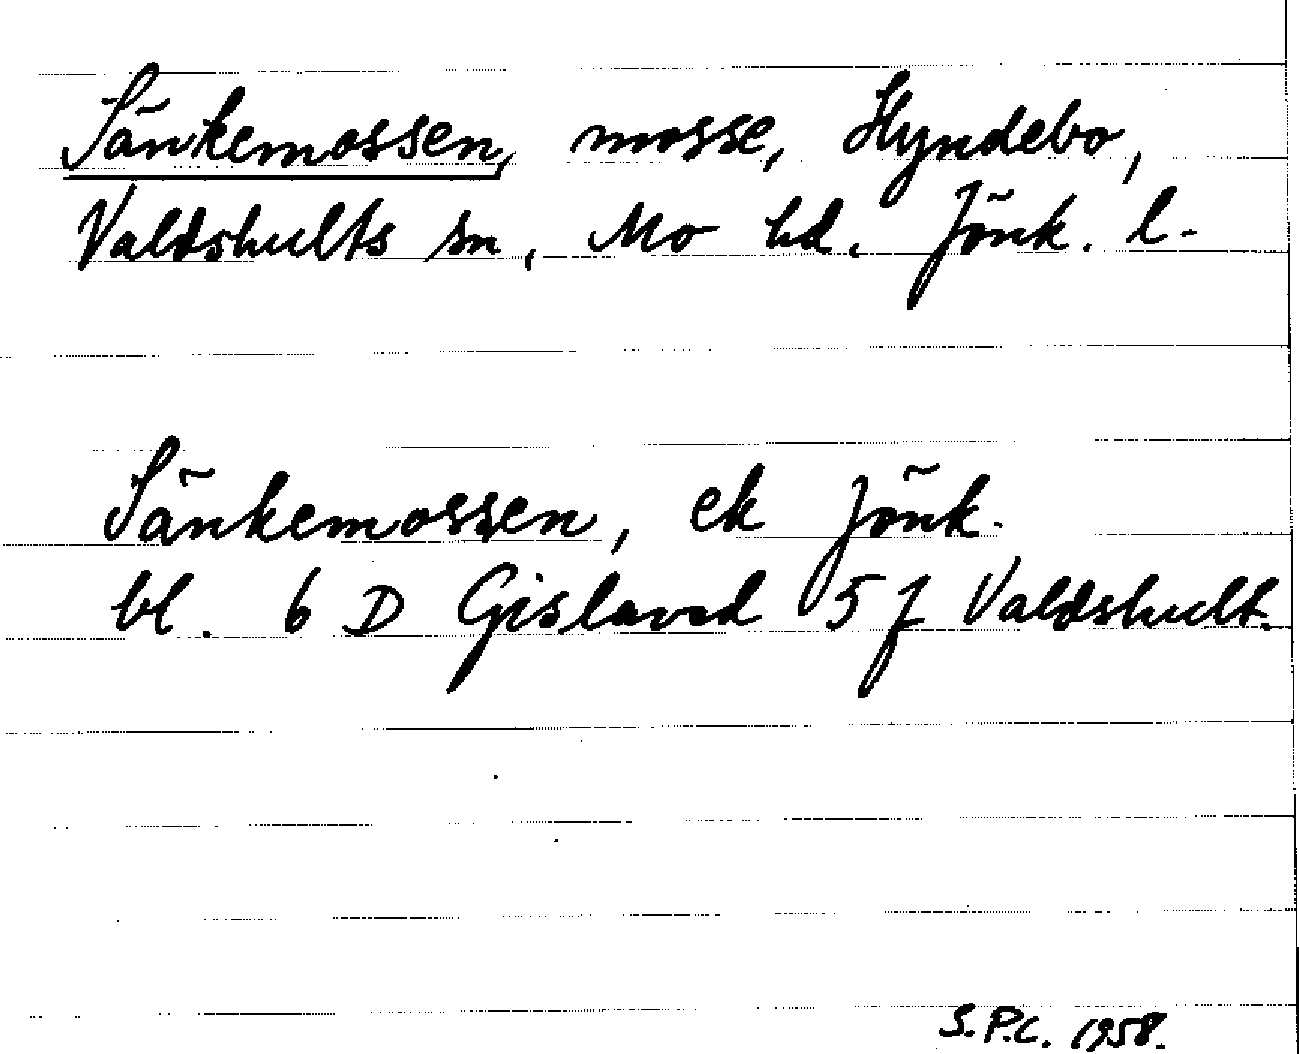 Sänkemossen, mosse, Hyndebo,
Valdshults sn, Mo hd. Jönk. l.
Sänkemossen, ek Jönk.
bl. 6 D Gislaved 5 J Valdshult.
S.P.C. 1958.